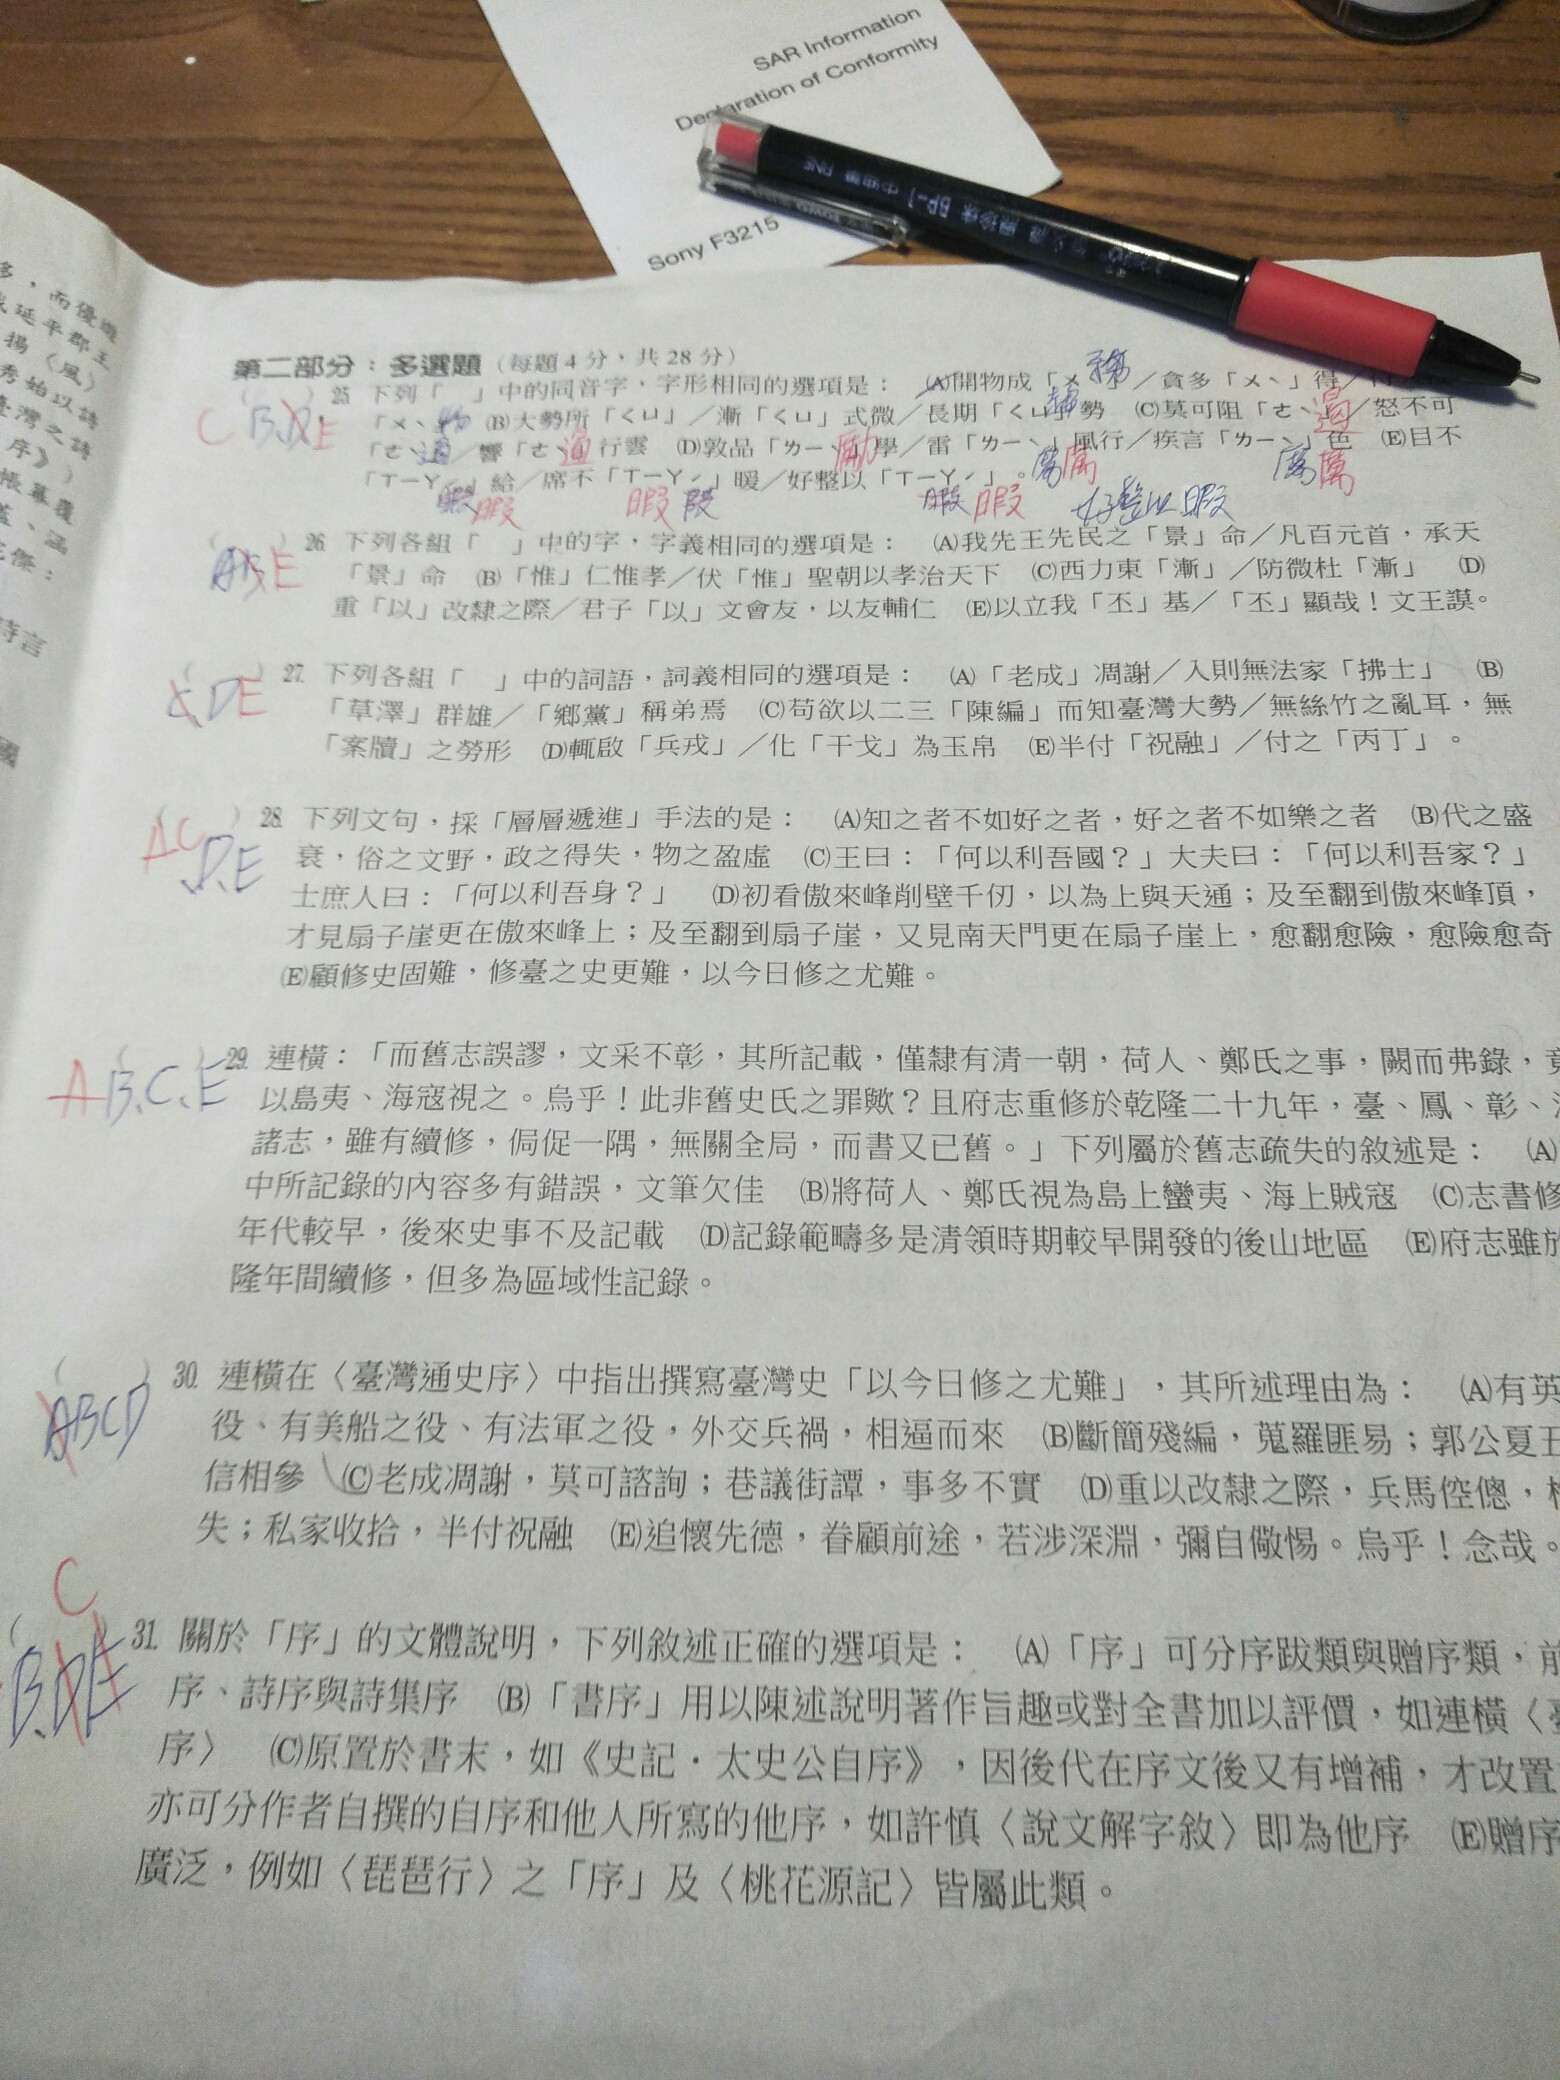 SAR Information
Declaration of Conformity
Sony F3215
BP-1
多，而優遊
延平郡王
揚〈風〉
秀始以詩
臺灣之詩
序》）
帳幕覆
蓋、涵
詩言
國
第二部分：多選題（每題4分，共28分）
C B.D.E
25. 下列「　」中的同音字，字形相同的選項是：　(A)開物成「ㄨˋ」／貪多「ㄨˋ」得／
務
「ㄨˋ　(B)大勢所「ㄑㄩ」／漸「ㄑㄩ」式微／長期「ㄑㄩ」勢　(C)莫可阻「ㄜˋ」／怒不可
物
趨
遏
「ㄜˋ／響「ㄜˋ」行雲　(D)敦品「ㄌㄧˋ」學／雷「ㄌㄧˋ」風行／疾言「ㄌㄧˋ」色　(E)目不
勵
厲
厲
「ㄒㄧㄚˊ」給／席不「ㄒㄧㄚˊ」暖／好整以「ㄒㄧㄚˊ」。
暇 暇
暇
暇 暇
好整以暇
ABE
26. 下列各組「　」中的字，字義相同的選項是：　(A)我先王先民之「景」命／凡百元首，承天
「景」命　(B)「惟」仁惟孝／伏「惟」聖朝以孝治天下　(C)西力東「漸」／防微杜「漸」　(D)
重「以」改隸之際／君子「以」文會友，以友輔仁　(E)以立我「丕」基／「丕」顯哉！文王謨。
DE
27. 下列各組「　」中的詞語，詞義相同的選項是：　(A)「老成」凋謝／入則無法家「拂士」　(B)
「草澤」群雄／「鄉黨」稱弟焉　(C)苟欲以二三「陳編」而知臺灣大勢／無絲竹之亂耳，無
「案牘」之勞形　(D)輒啟「兵戎」／化「干戈」為玉帛　(E)半付「祝融」／付之「丙丁」。
AC
D.E
28. 下列文句，採「層層遞進」手法的是：　(A)知之者不如好之者，好之者不如樂之者　(B)代之盛
衰，俗之文野，政之得失，物之盈虛　(C)王曰：「何以利吾國？」大夫曰：「何以利吾家？」
士庶人曰：「何以利吾身？」　(D)初看傲來峰削壁千仞，以為上與天通；及至翻到傲來峰頂，
才見扇子崖更在傲來峰上；及至翻到扇子崖，又見南天門更在扇子崖上，愈翻愈險，愈險愈奇
(E)顧修史固難，修臺之史更難，以今日修之尤難。
A B.C.E
29. 連橫：「而舊志誤謬，文采不彰，其所記載，僅隸有清一朝，荷人、鄭氏之事，闕而弗錄，竟
以島夷、海寇視之。烏乎！此非舊史氏之罪歟？且府志重修於乾隆二十九年，臺、鳳、彰、
諸志，雖有續修，侷促一隅，無關全局，而書又已舊。」下列屬於舊志疏失的敘述是：　(A)
中所記錄的內容多有錯誤，文筆欠佳　(B)將荷人、鄭氏視為島上蠻夷、海上賊寇　(C)志書修
年代較早，後來史事不及記載　(D)記錄範疇多是清領時期較早開發的後山地區　(E)府志雖於
隆年間續修，但多為區域性記錄。
ABCD
30. 連橫在〈臺灣通史序〉中指出撰寫臺灣史「以今日修之尤難」，其所述理由為：　(A)有英
役、有美船之役、有法軍之役，外交兵禍，相逼而來　(B)斷簡殘編，蒐羅匪易；郭公夏五
信相參　(C)老成凋謝，莫可諮詢；巷議街譚，事多不實　(D)重以改隸之際，兵馬倥傯，
失；私家收拾，半付祝融　(E)追懷先德，眷顧前途，若涉深淵，彌自儆惕。烏乎！念哉。
C
B.DE
31. 關於「序」的文體說明，下列敘述正確的選項是：　(A)「序」可分序跋類與贈序類，前
序、詩序與詩集序　(B)「書序」用以陳述說明著作旨趣或對全書加以評價，如連橫〈臺
序〉　(C)原置於書末，如《史記．太史公自序》，因後代在序文後又有增補，才改置
亦可分作者自撰的自序和他人所寫的他序，如許慎〈說文解字敘〉即為他序　(E)贈序
廣泛，例如〈琵琶行〉之「序」及〈桃花源記〉皆屬此類。